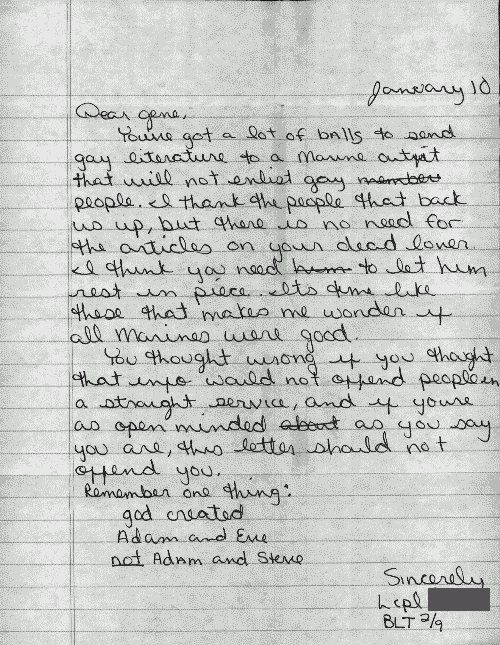 January 10
Dear gene,
Youve got a lot of balls to send
gay literature to a Marine outfit
that will not enlist gay members
people. I thank the people that back
us up, but there is no need for
the articles on your dead lover.
I think ya need him to let him
rest in piece. Its time like
these that makes me wonder if
all Marines were good.
You thought wrong if you thought
that info would not offend people in
a straight service, and if youre
as open minded about as you say
you are, this letter should not
offend you.
Remember one thing:
god created
Adam and Eve
not Adam and Steve
Sincerely
Lcpl
BLT 2/9